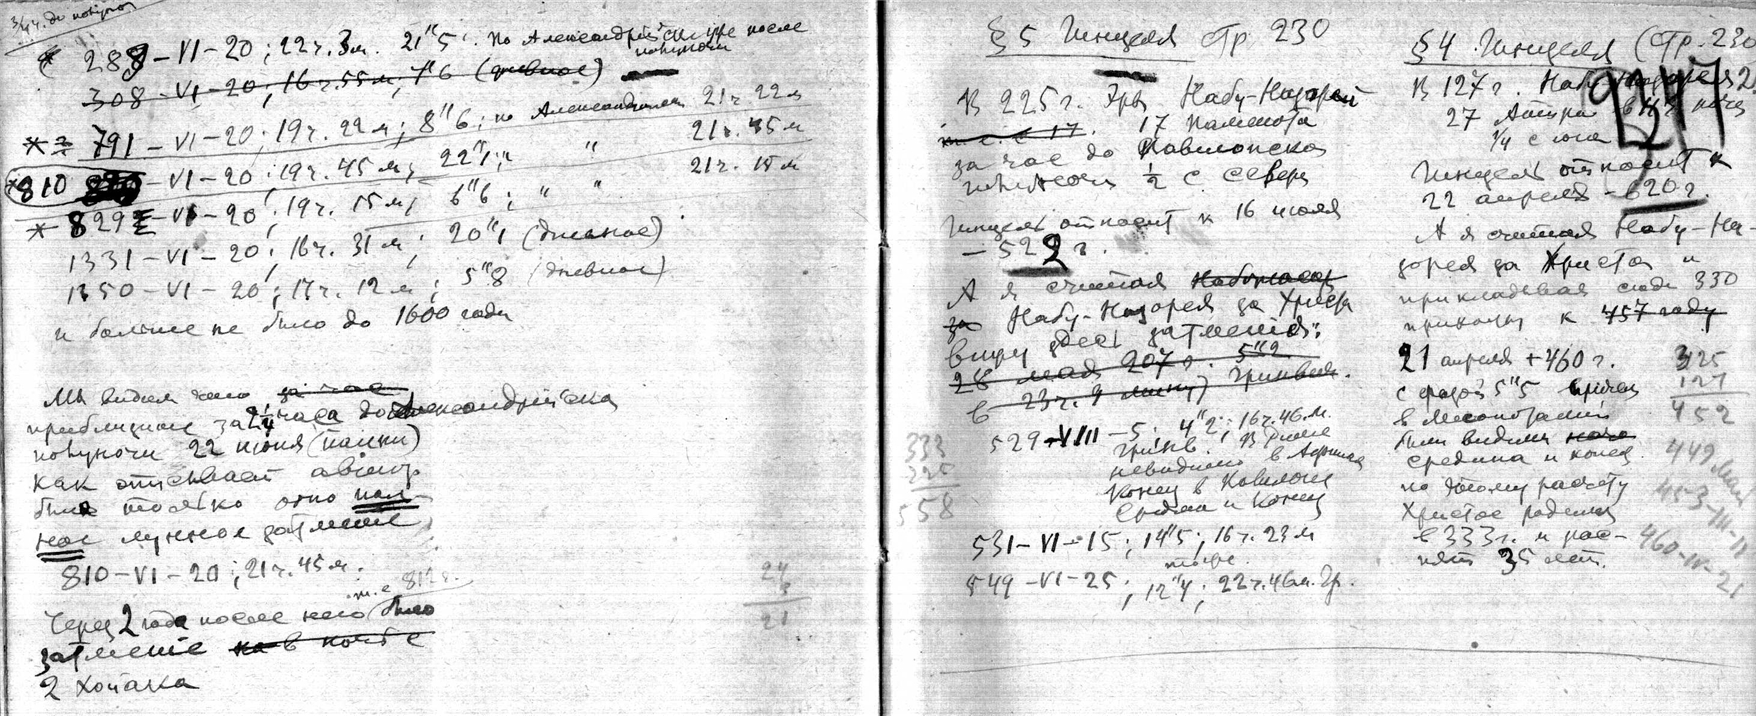 3/4 ч. до полуноч
288 – VI – 20; 22 ч. 3 м. 21"5. по Александрийски уже после полуночи
308 – VI – 20; 16 ч. 55 м, 7"6 (дневное)
791 – VI – 20; 19 ч. 22 м; 8"6; по Александрийски 21 ч 22 м
810 – VI – 20; 19 ч. 45 м; 22"1; " " 21 ч. 45 м
829 – VI – 20; 19 ч. 15 м; 6"6; " " 21 ч. 15 м
1331 – VI – 20; 16 ч. 31 м; 20"1 (дневное)
1350 – VI – 20; 17 ч. 12 м; 5"8 (дневное)
и больше не было до 1600 года
Мы видим что за час
приблизит за 2 1/4 часа до Александрийска
полуночи 22 июня (паини)
как описывает автор
было только одно пол-
ное лунное затмение
810 – VI – 20; 21 ч. 45 м.
т. е 812 г.
Через 2 года после него было
затмение в ночь с
2 Хойака
24
3
21
§ 5 Гинцеля стр 230
В 225 г. Эры Набу-Назарей
т. е. с 17. 17 Паменота
за час до Вавилонска
полночи 1/2 с севера
Гинцель относит к 16 июля
– 522 г.
А я считая Набонасар
за Набу-Назарея за Христа
вижу здесь затмения:
28 мая 207 г. 5"2
в 23 ч. 9 минут Гринвич.
529 – VIII – 5; 4"2; 16 ч. 46 м.
Гринв. В Риме
невидимо в Африке
конец в Вавилоне
средина и конец
531 – VI – 15; 14"5; 16 ч. 23 м
тоже
549 – VI – 25; 12"4; 22 ч. 46 м. Гр.
333
225
558
§ 4 Гинцеля (стр. 230
247
В 127 г. Набу-Назарея
27 Атира в 11 ч ночи
1/4 с юга
Гинцель относит к
22 апреля – 620 г.
А я считая Набу-На-
зорея за Христа и
прикладывая сюда 330
прихожу к 457 году
21 апреля + 460 г.
с фазой 5"5 причем
в Месопотамии
были видимы нача
средина и конец
по этому расчету
Христос родился
в 333 г. и рас-
пят 35 лет.
325
127
452
449 Май
453-III-11
460-IV-21